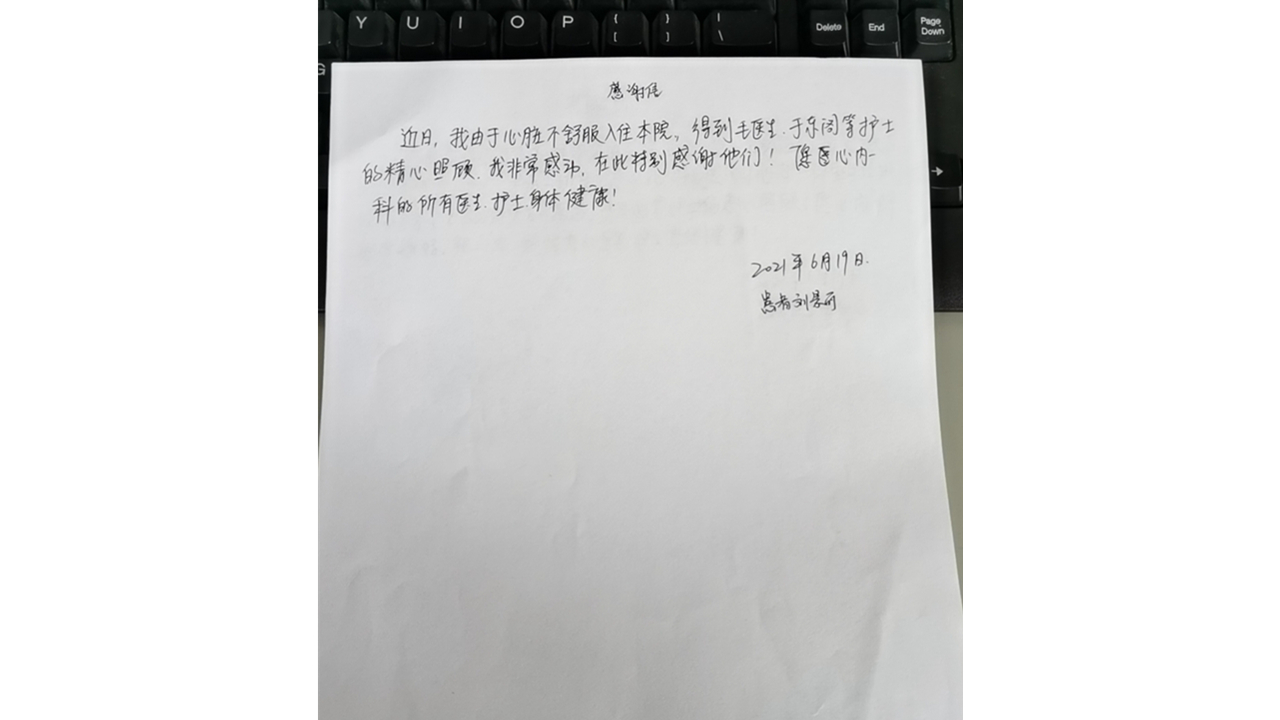 Y U I O P { [ } ] | \ Delete End Page Down
G
感谢信
近日,我由于心脏不舒服入住本院,得到毛医生.于东阁等护士
的精心照顾.我非常感动,在此特别感谢他们! 医心内一
科的所有医生.护士身体健康!
2021年6月19日.
患者刘景丽